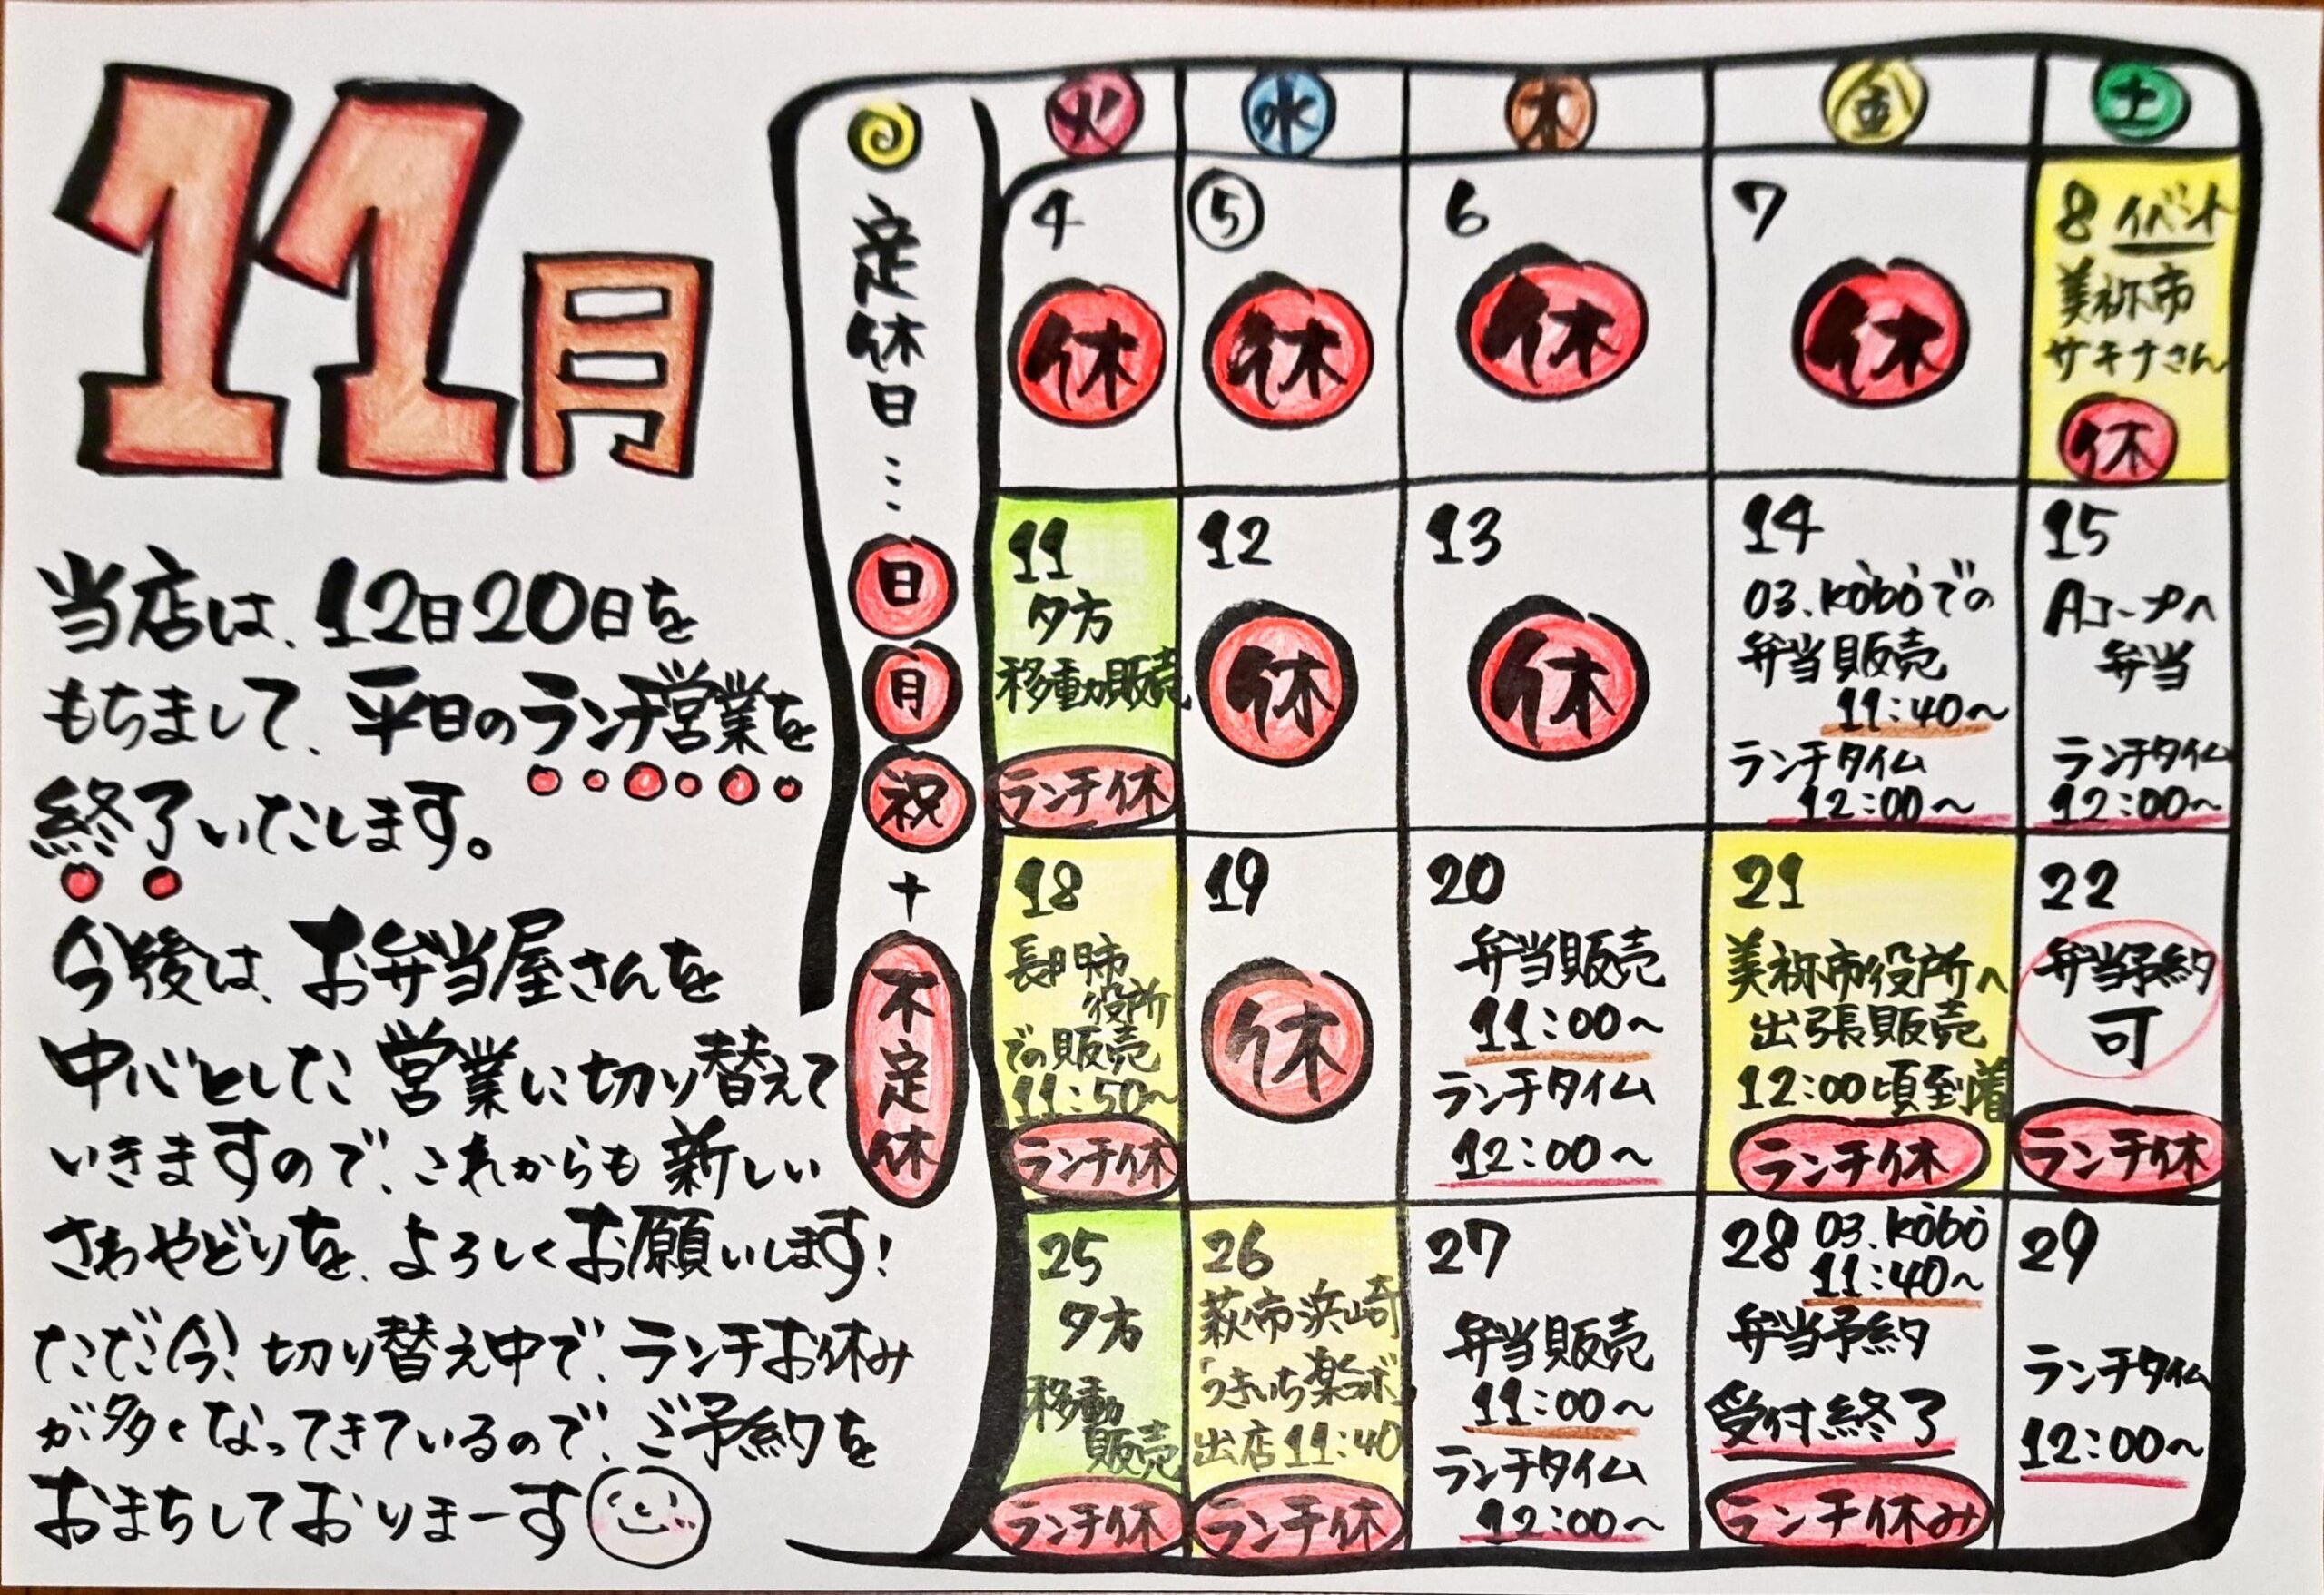 11月
当店は、12日20日を
もちまして、平日のランチ営業を
終了いたします。
今後は、お弁当屋さんを
中心とした営業に切り替えて
いきますので、これからも新しい
さわやどりを、よろしくお願いします!
ただ今、切り替え中で、ランチお休み
が多くなってきているので、ご予約を
おまちしておりまーす
定休日…
日
月
祝
+
不定休
火 水 木 金 土
4
休
⑤
休
6
休
7
休
8 イベント
美祢市
サキナさん
休
11
夕方
移動販売
ランチ休
12
休
13
休
14
03.koboでの
弁当販売
11:40〜
ランチタイム
12:00〜
15
Aコープへ
弁当
ランチタイム
12:00〜
18
長門市
役所
での販売
11:50〜
ランチ休
19
休
20
弁当販売
11:00〜
ランチタイム
12:00〜
21
美祢市役所へ
出張販売
12:00頃到着
ランチ休
22
弁当予約
可
ランチ休
25
夕方
移動
販売
ランチ休
26
萩市浜崎
出店11:40
ランチ休
27
弁当販売
11:00〜
ランチタイム
12:00〜
28 03.kobo
11:40〜
弁当予約
受付終了
ランチ休み
29
ランチタイム
12:00〜